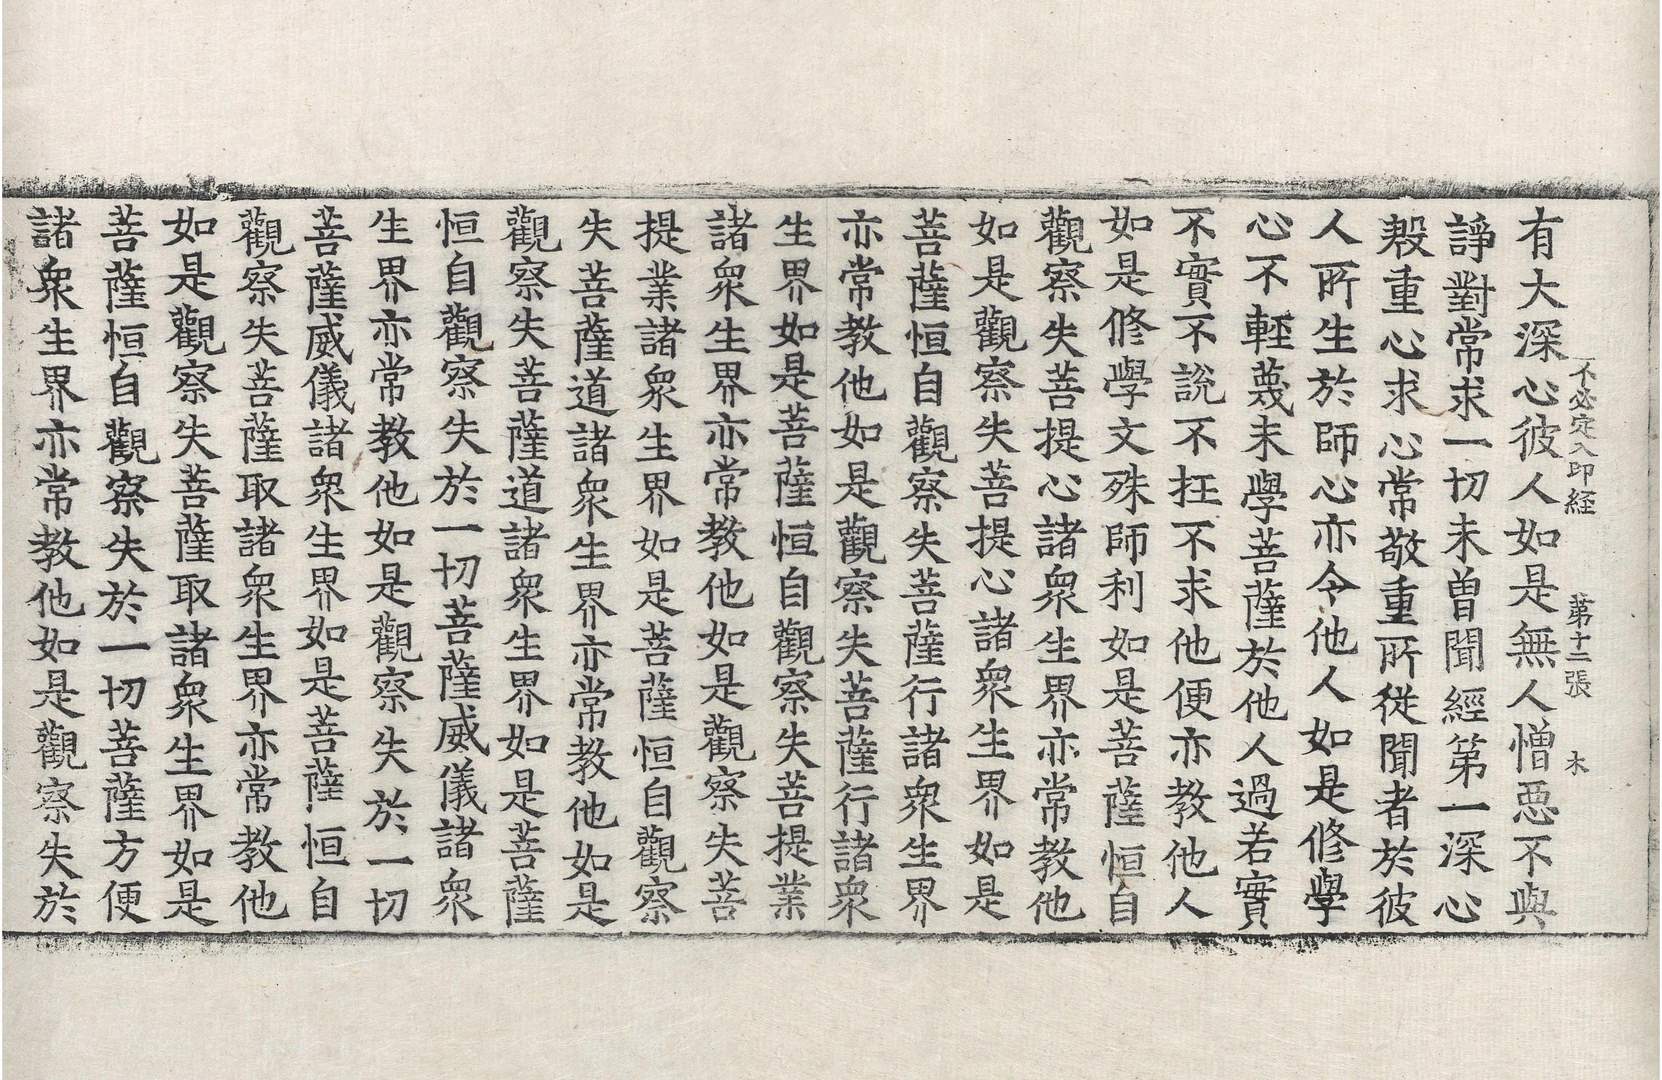 不必定入印経 第十二張 木
有大深心彼人如是無人憎惡不與
諍對常求一切未曾聞經第一深心
殷重心求心常敬重所從聞者於彼
人所生於師心亦令他人如是修學
心不輕蔑未學菩薩於他人過若實
不實不說不抂不求他便亦教他人
如是修學文殊師利如是菩薩恒自
觀察失菩提心諸衆生界亦常教他
如是觀察失菩提心諸衆生界如是
菩薩恒自觀察失菩薩行諸衆生界
亦常教他如是觀察失菩薩行諸衆
生界如是菩薩恒自觀察失菩提業
諸衆生界亦常教他如是觀察失菩
提業諸衆生界如是菩薩恒自觀察
失菩薩道諸衆生界亦常教他如是
觀察失菩薩道諸衆生界如是菩薩
恒自觀察失於一切菩薩威儀諸衆
生界亦常教他如是觀察失於一切
菩薩威儀諸衆生界如是菩薩恒自
觀察失菩薩取諸衆生界亦常教他
如是觀察失菩薩取諸衆生界如是
菩薩恒自觀察失於一切菩薩方便
諸衆生界亦常教他如是觀察失於